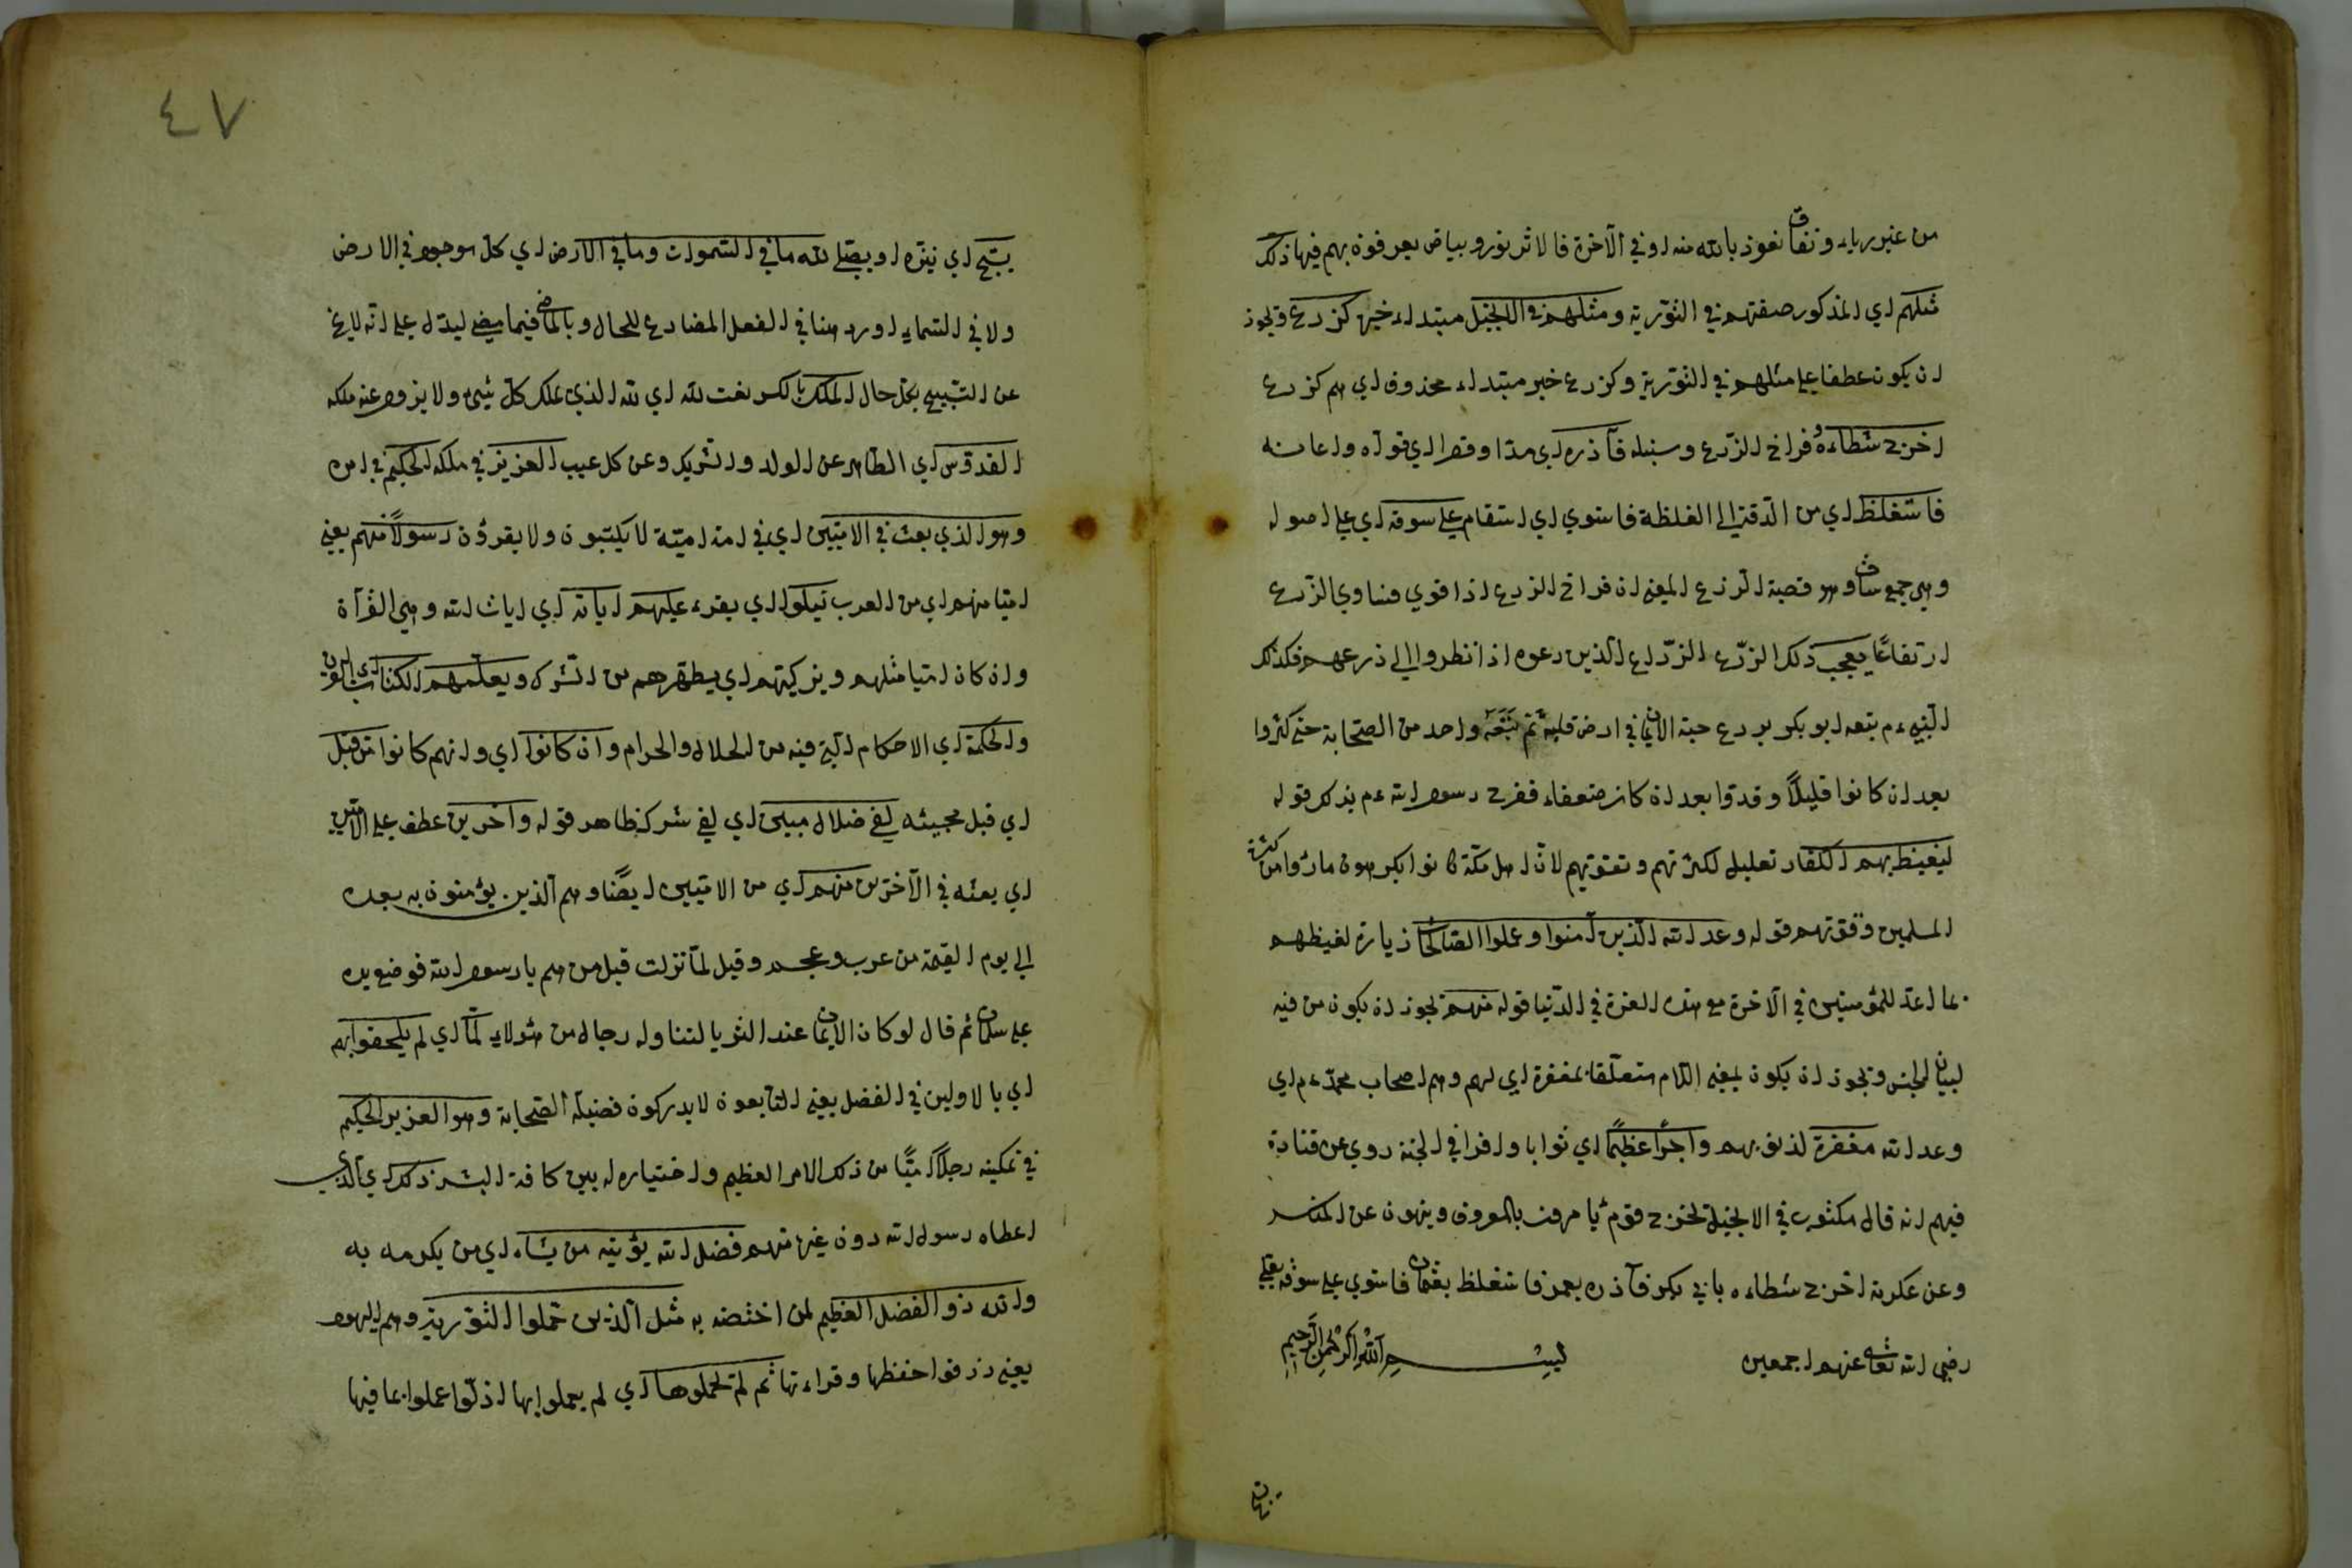 من غير رياء ونفاق نعوذ بالله منه او في الآخرة فالاثر نور وبياض يعرفون بهم فيها ذلك
مثلهم اي المذكور صفتهم في التورية ومثلهم في الانجيل مبتداء خبره كزرع ويجوز
ان يكون عطفا على مثلهم في التورية وكزرع خبر مبتداء محذوف اي هم كزرع
اخرج شطاءه فراخ الزرع وسنبله فآذره اي مدا وقصرا اي قواه واعانه
فاستغلظ اي من الدقة الى الغلظة فاستوي اي استقام على سوقه اي على اصوله
وهي جمع ساق وهو قصبة الزرع المعنى ان فراخ الزرع اذا قوي فساوي الزرع
ارتفاعا يعجب ذلك الزرع الزراع الذين زرعوه اذا نظروا الى زرعهم فكذلك
النبي ءم تبعه ابو بكر بزرع حبة الايمان في ارض قلبه ثم تبعه واحد من الصحابة حتى كثروا
بعد ان كانوا قليلا وقووا بعد ان كانوا ضعفاء ففرح رسول الله ءم بذلك قوله
ليغيظ بهم الكفار تعليل لكثرتهم وتقويتهم لان اهل مكة كانوا يكرهون ما رأوا من كثرة
المسلمين وقوتهم قوله وعد الله الذين آمنوا وعملوا الصالحات زيادة لغيظهم
بما اعد للمؤمنين في الآخرة مع هذه العزة في الدنيا قوله منهم يجوز ان يكون من فيه
لبيان الجنس ويجوز ان يكون بمعنى اللام متعلقا بمغفرة اي لهم وهم اصحاب محمد ءم اي
وعد الله مغفرة لذنوبهم واجرا عظيما اي ثوابا وافرا في الجنة روي عن قتادة
فيهم انه قال مكتوب في الانجيل يخرج قوم يامرون بالمعروف وينهون عن المنكر
وعن عكرمة اخرج شطاءه بابي بكر فآذره بعمر فاستغلظ بعثمان فاستوي على سوقه بعلي
رضي الله تعالى عنهم اجمعين بسم الله الرحمن الرحيم
٤٧
يسبح اي ينزه او يصلي لله ما في السموات وما في الارض اي كل موجود في الارض
ولا في السماء اورد هنا في الفعل المضارع للحال وبالماضي فيما مضى ليدل على انه لا يخ
عن التسبيح بكل حال الملك بالكسر نعت لله اي لله الذي يملك كل شيء ولا يزول عنه ملكه
القدوس اي الطاهر عن الولد والشريك وعن كل عيب العزيز في ملكه الحكيم في امره
وهو الذي بعث في الاميين اي في امة امية لا يكتبون ولا يقرؤن رسولا منهم يعني
اميا منهم اي من العرب يتلوا اي يقرء عليهم اياته اي ايات الله وهي القرآن
وان كان اميا مثلهم ويزكيهم اي يطهرهم من الشرك ويعلمهم الكتاب اي القرآن
والحكمة اي الاحكام التي فيه من الحلال والحرام وان كانوا اي وانهم كانوا من قبل
اي قبل مجيئه لفي ضلال مبين اي لفي شرك ظاهر قوله وآخرين عطف على الاميين
اي بعثه في الآخرين منهم اي من الاميين ايضا وهم الذين يؤمنون به بعده
الى يوم القيمة من عرب وعجم وقيل لما نزلت قيل من هم يا رسول الله فوضع يده
على سلمان ثم قال لو كان الايمان عند الثريا لتناوله رجال من هولاء لما اي لم يلحقوا بهم
اي بالاولين في الفضل يعني التابعون لا يدركون فضيلة الصحابة وهو العزيز الحكيم
في تمكينه رجلا اميا من ذلك الامر العظيم واختياره له بين كافة البشر ذلك اي الذي
اعطاه رسول الله دون غيره منهم فضل الله يؤتيه من يشاء اي من يكرمه به
والله ذو الفضل العظيم لمن اختصه به مثل الذين حملوا التورية وهم اليهود
يعني رزقوا حفظها وقراءتها ثم لم يحملوها اي لم يعملوا بها اذ لو عملوا بما فيها